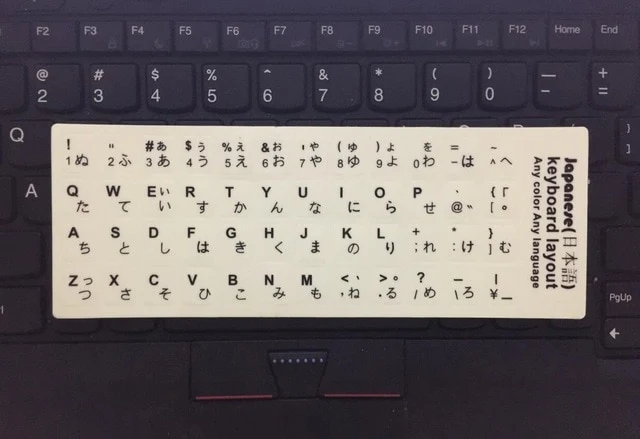 F2 F3 F4 F5 F6 F7 F8 F9 F10 F11 F12 Home End
@ # $ % ^ & * ( ) — +
2 3 4 5 6 7 8 9 0 - =
Q
A
! " #ぁ $ぅ %ぇ &ぉ 'ゃ (ゅ )ょ を = ~
1ぬ 2ふ 3あ 4う 5え 6お 7や 8ゆ 9よ 0わ -ほ ^へ
Q W Eぃ R T Y U I O P ` {「
た て い す か ん な に ら せ @゛ [゜
A S D F G H J K L + * }
ち と し は き く ま の り ;れ :け ]む
Zっ X C V B N M <、 >。 ? _ |
つ さ そ ひ こ み も ,ね .る /め \ろ ¥ー
Japanese(日本語)
keyboard layout
Any color Any language
PgUp